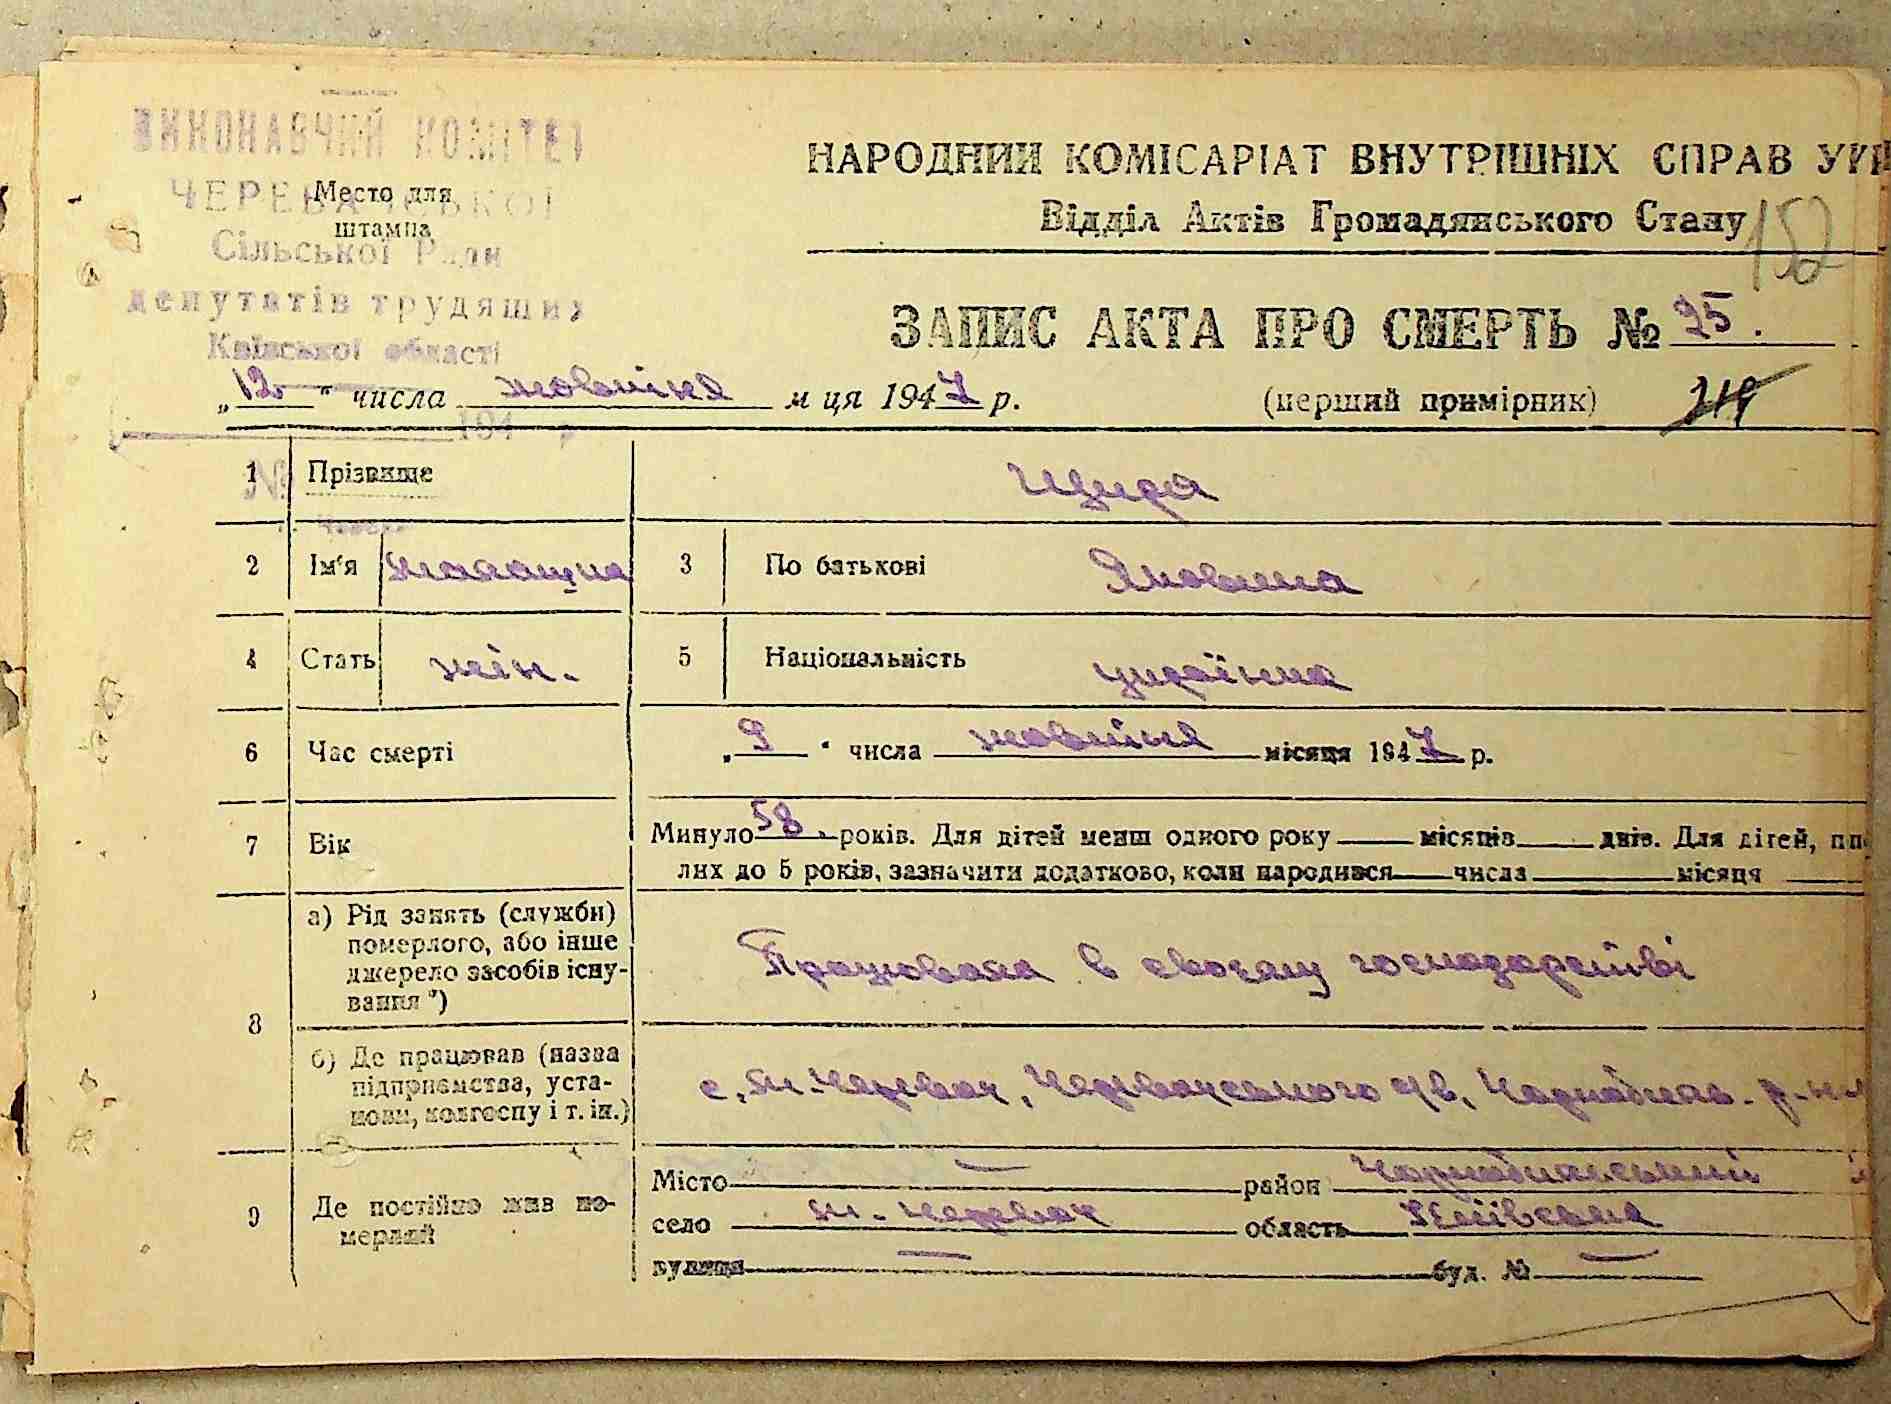 ВИКОНАВЧИЙ КОМІТЕТ
ЧЕРЕВАЧСЬКОЇ
Сільської Ради
депутатів трудящих
Київської області
194
№
Место для
штампа
НАРОДНИЙ КОМІСАРІАТ ВНУТРІШНІХ СПРАВ УРСР
Відділ Актів Громадянського Стану
152
ЗАПИС АКТА ПРО СМЕРТЬ № 25.
„12“ числа жовтня м ця 1947 р. (перший примірник) 219
1 Прізвище Щира
2 Ім'я 3 По батькові Яковина
4 Стать жін. 5 Національність українка
6 Час смерті „9“ числа жовтня місяця 1947 р.
7 Вік Минуло 58. років. Для дітей менш одного року місяців днів. Для дітей,
лих до 5 років, зазначити додатково, коли народився числа місяця
8 а) Рід занять (служби)
померлого, або інше
джерело засобів існу-
вання *)
Працювала в своєму господарстві
б) Де працював (назва
підприємства, уста-
нови, колгоспу і т. ін.)
с. Черевач, Черевачського Чорнобильс. р-н
9 Де постійно жив по-
мерлий
Місто — район Чорнобильський
село Черевач область Київська
вулиця — буд. № —